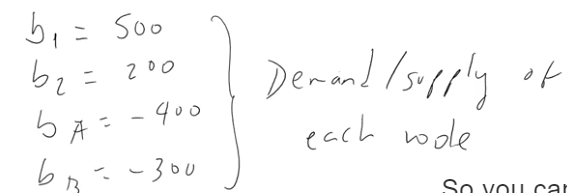 b₁ = 500
b₂ = 200
b_A = -400
b_B = -300
Demand/supply of
each node
So you can